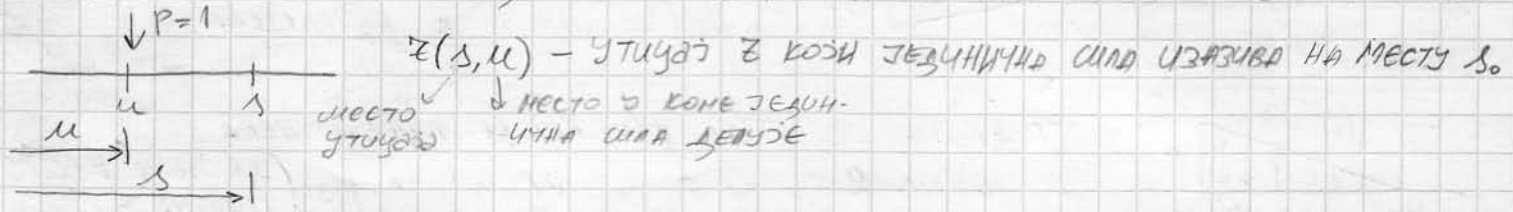 ↓P=1
Z(s,u) – УТИЦАЈ Z КОЈИ ЈЕДИНИЧНА СИЛА ИЗАЗИВА НА МЕСТУ s.
u s
МЕСТО УТИЦАЈА
МЕСТО У КОМЕ ЈЕДИН-
ИЧНА СИЛА ДЕЛУЈЕ
u
s